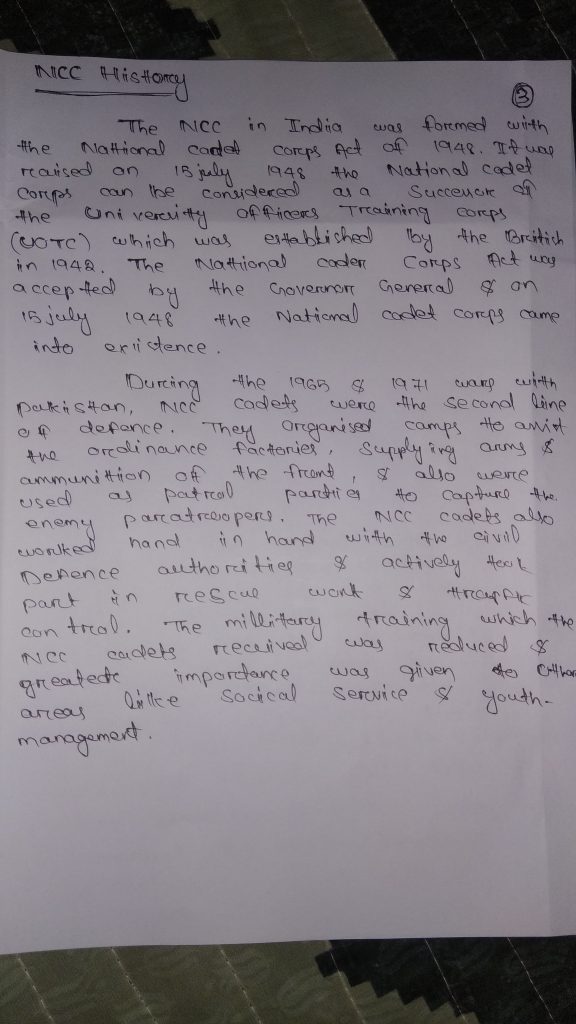 NCC History
3
The NCC in India was formed with
the National cadet corps Act of 1948. It was
raised on 15 july 1948 the National cadet
Corps can be considered as a Successor of
the University officers Training corps
(UOTC) which was established by the British
in 1942. The National cadet Corps Act was
accepted by the Governor General & on
15 july 1948 the National cadet corps came
into existence.
During the 1965 & 1971 wars with
pakistan, NCC cadets were the second line
of defance. They organised camps to assist
the ordinance factories, supplying arms &
ammunition of the front, & also were
used as patrol parties to capture the
enemy paratroopers. The NCC cadets also
worked hand in hand with the civil
Defence authorities & actively took
part in rescue work & traffic
control. The millitary training which the
NCC cadets received was reduced &
greater importance was given to other
areas like socical service & youth-
management.